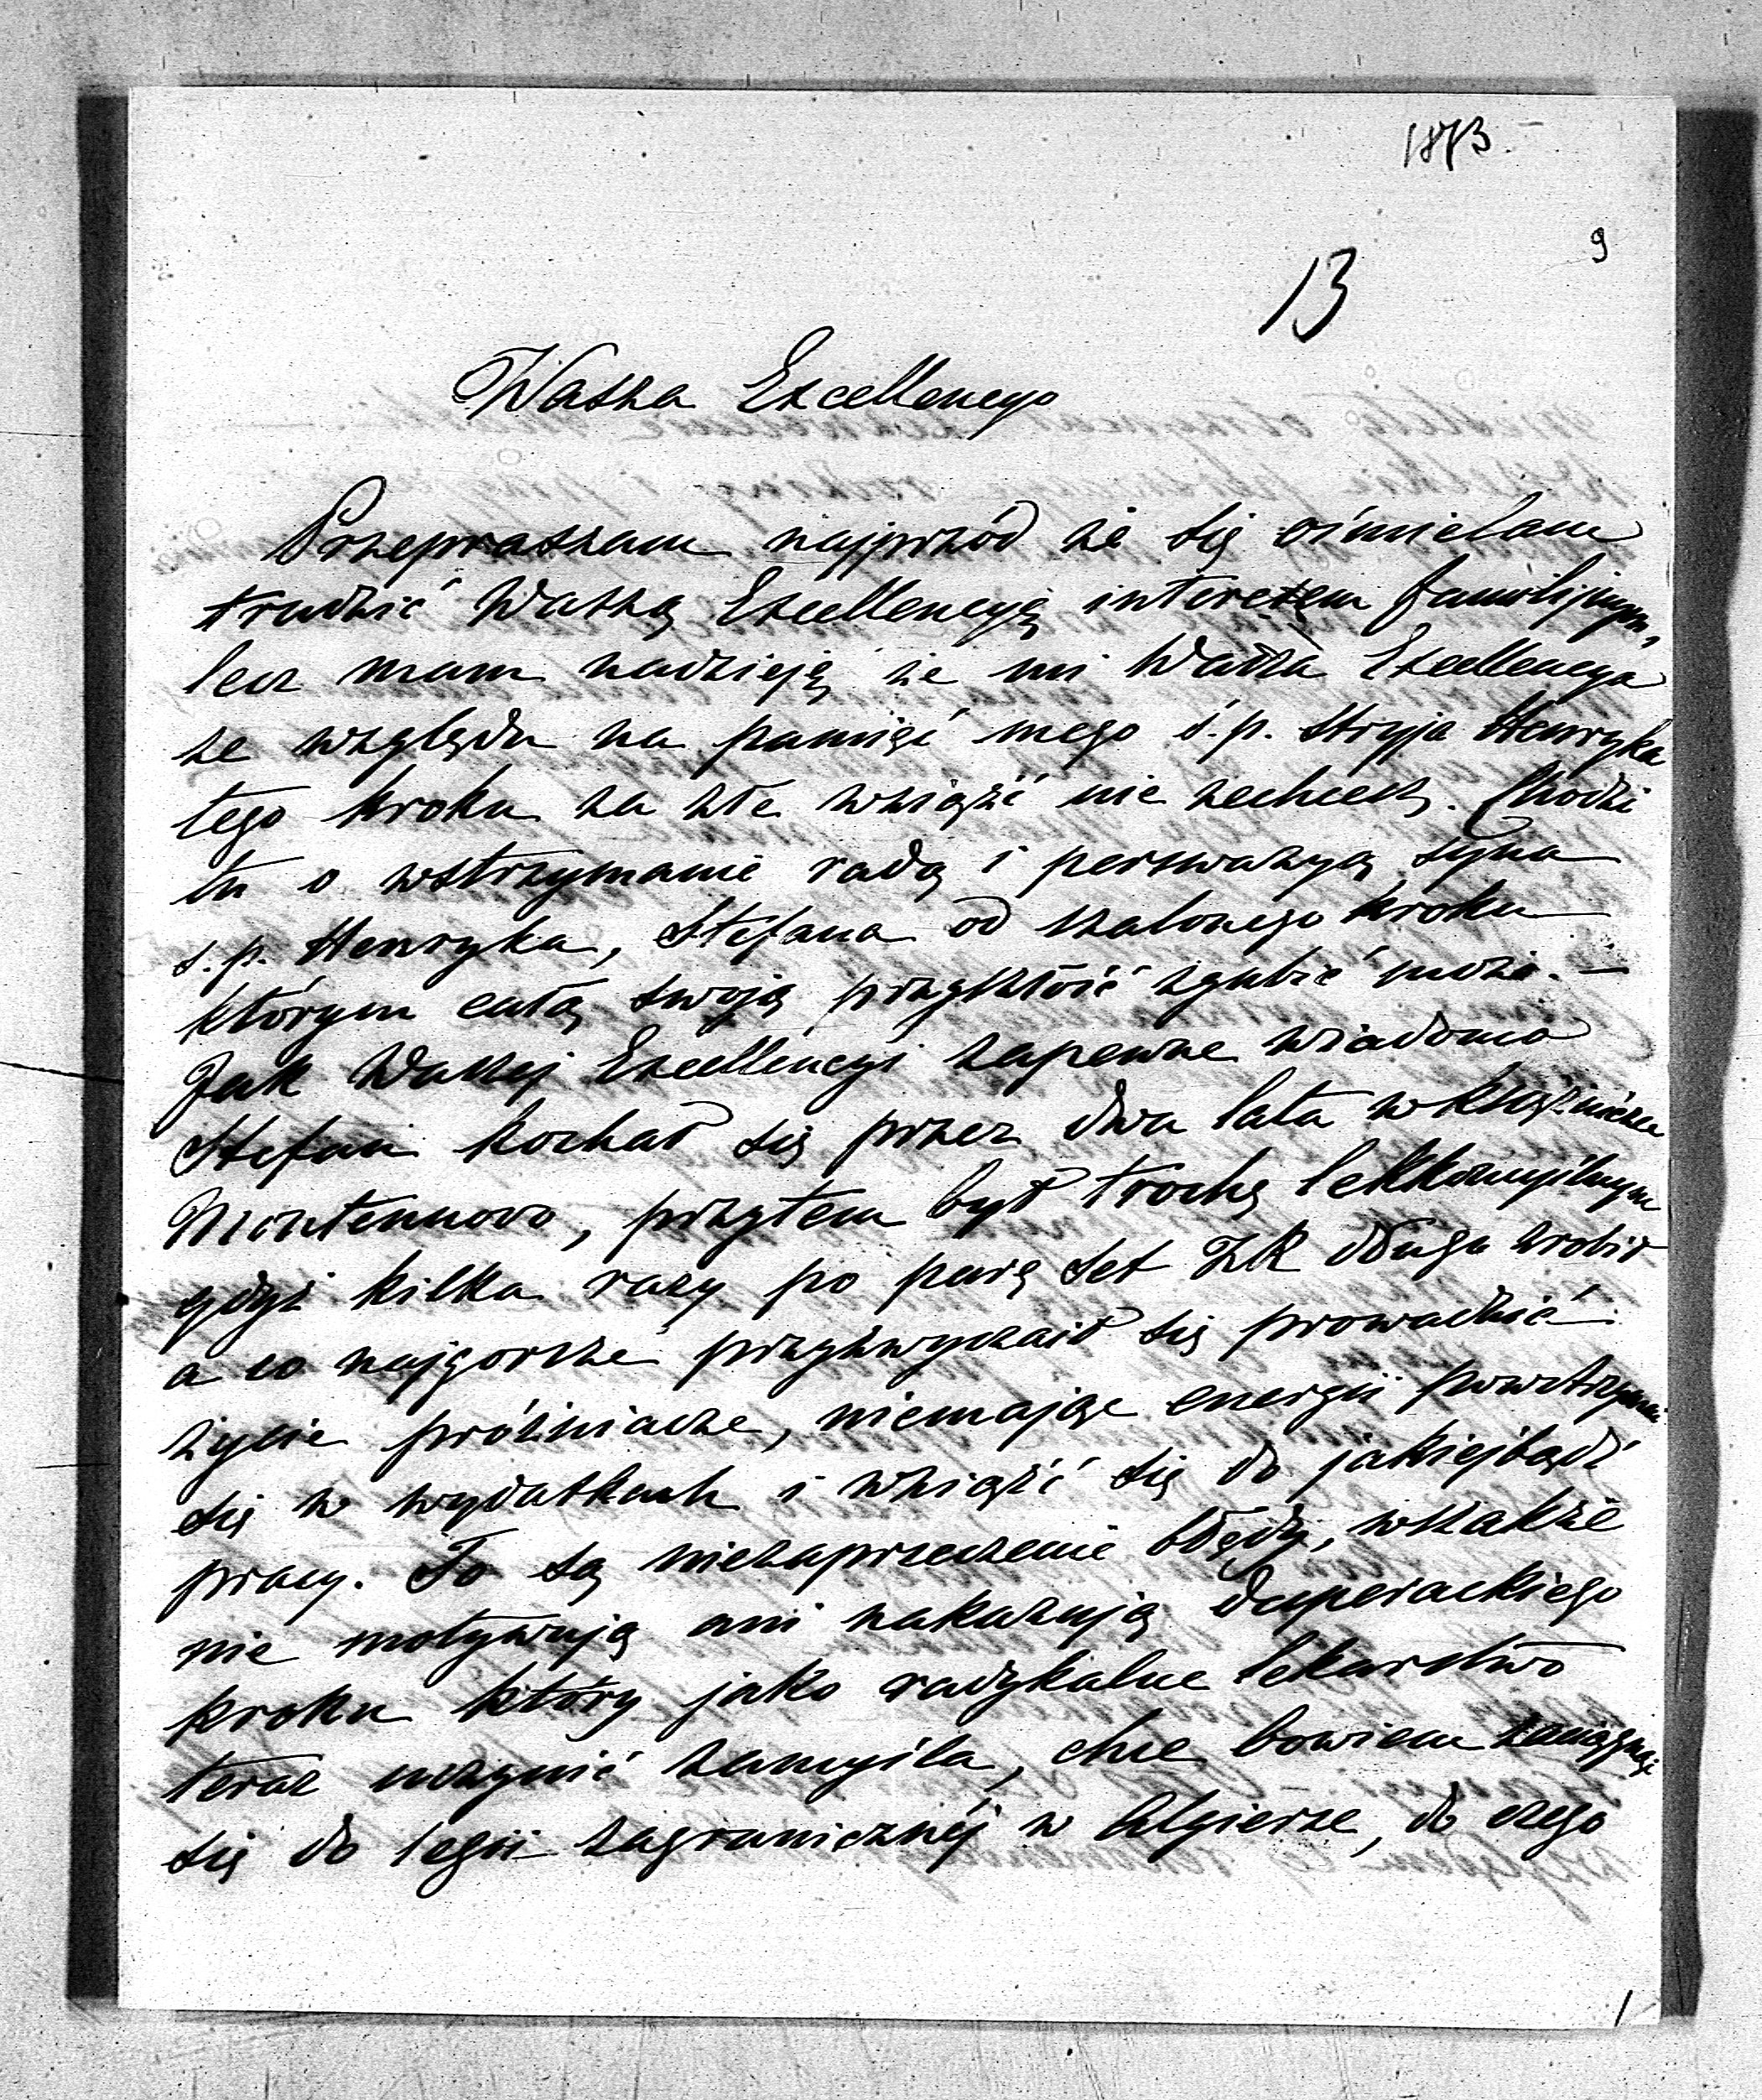 1873.
9
13
Wasza Excellencyo
Przepraszam najprzód że się ośmielam
trudzić Waszą Excellencyą interesem familijnym,
lecz mam nadzieję że mi Wasza Excellencya
ze względu na pamięć mego ś.p. Stryja Henryka
tego kroku za złe wziąźć nie zechcesz. Chodzi
tu o wstrzymanie radą i perswazyą syna
s.p. Henryka, Stefana od szalonego kroku
którym całą swoją przyszłość zgubić może. –
Jak Waszej Excellencyi zapewne wiadomo
Stefan kochał się przez dwa lata w księżniczce
Montenuovo, przytem był trochę lekkomyślnym
gdyż kilka razy po parę set ZR długu zrobił
a co najgorsze przyzwyczaił się prowadzić
życie próżniacze, niemając energii powstrzymać
się w wydatkach i wziąźć się do jakiejbądź
pracy. To są niezaprzeczenie błędy, wszakże
nie motywują ani nakazują desperackiego
kroku który jako radykalne lekarstwo
teraz uczynić zamyśla, chce bowiem zaciągnąć
się do legii zagranicznéj w Algierze, do czego
1